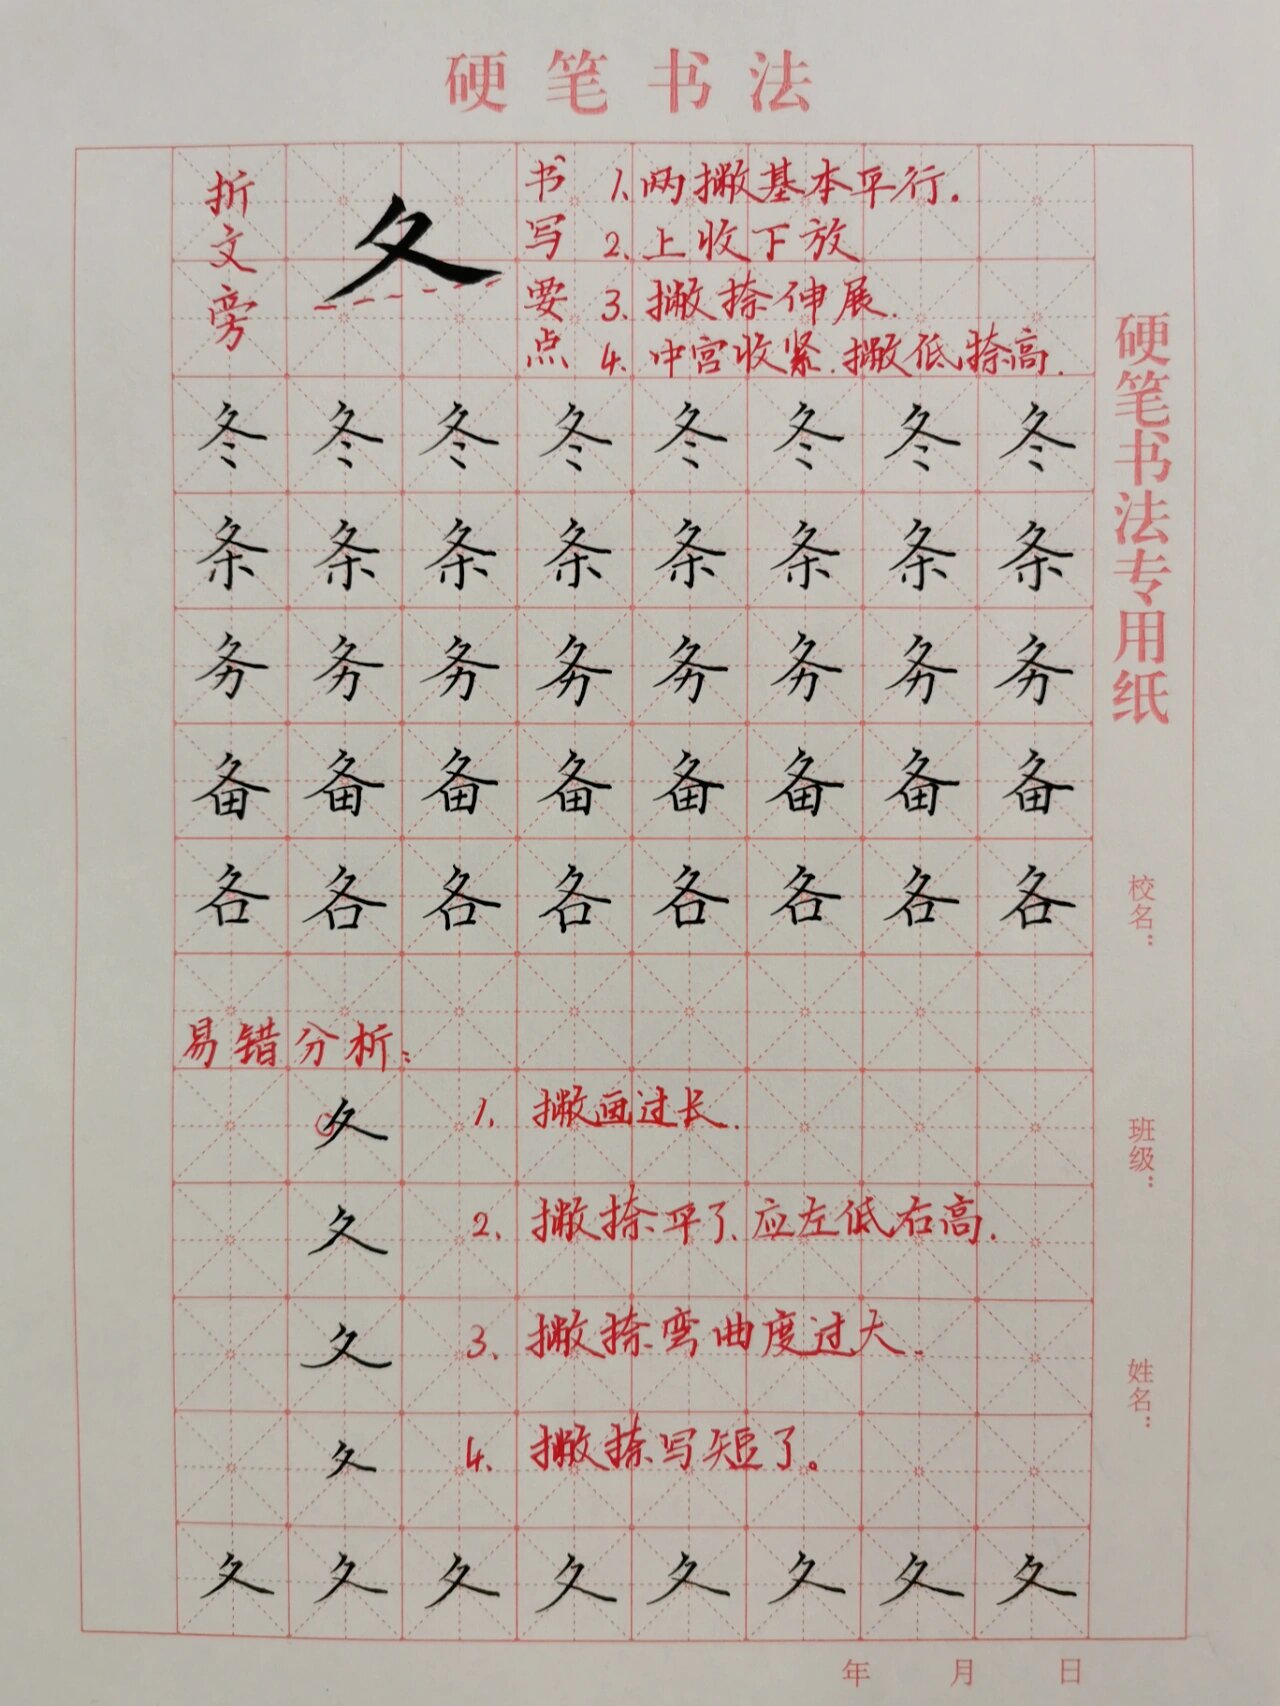 硬笔书法
折文旁
夂
书写要点
1、两撇基本平行.
2、上收下放
3、撇捺伸展.
4、中宫收紧.撇低捺高.
冬冬冬冬冬冬冬冬
条条条条条条条条
务务务务务务务务
备备备备备备备备
各各各各各各各各
易错分析:
夂 1、撇画过长.
夂 2、撇捺平了、应左低右高.
夂 3、撇捺弯曲度过大.
夂 4、撇捺写短了。
夂夂夂夂夂夂夂夂
硬笔书法专用纸
校名：
班级：
姓名：
年 月 日